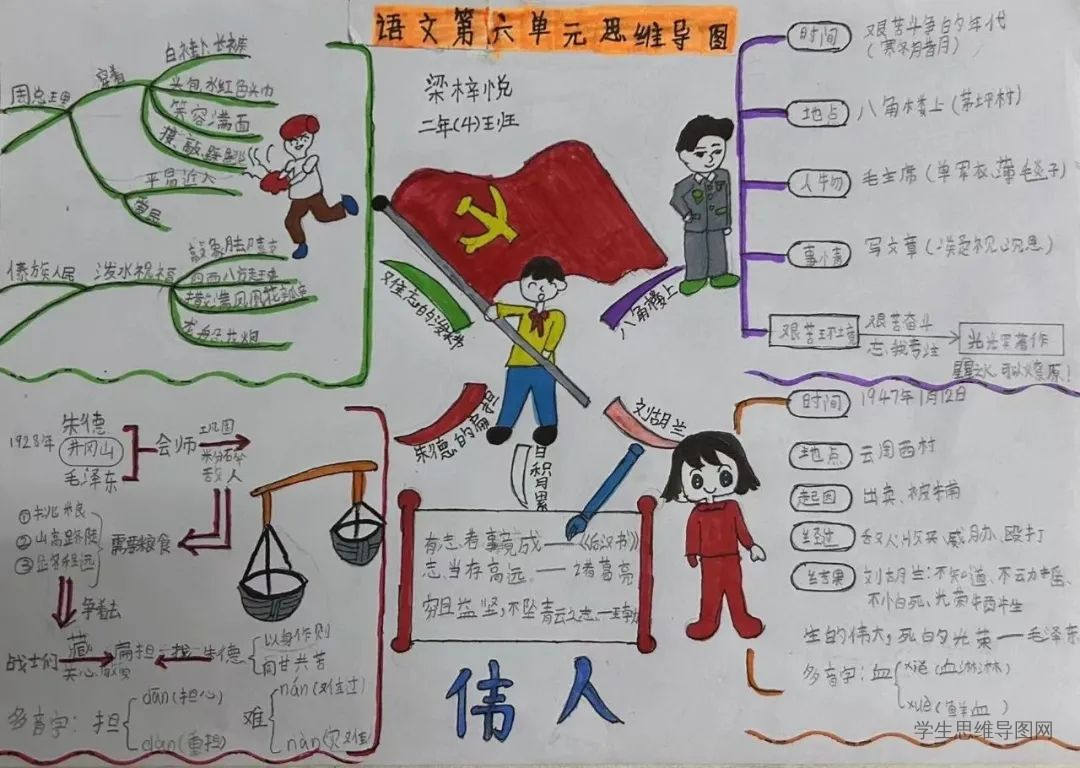 语文第六单元思维导图
梁梓悦
二年(4)班
周总理
穿着
白衬衫 长裤
头包水红色头巾
笑容满面
平易近人
傣族人民
泼水祝福
难忘的泼水节
八角楼上
朱德的扁担
刘胡兰
日积月累
时间
艰苦斗争的年代
(寒冬腊月)
地点
八角楼上(茅坪村)
人物
毛主席(单军衣、薄毛毯子)
事情
写文章(凝视、沉思)
艰苦环境
艰苦奋斗
忘我专注
光辉著作
星星之火,可以燎原!
朱德
1928年
井冈山
毛泽东
会师
巩固
粉碎
敌人
①挑米粮
②山高路陡
③
需要粮食
争着去
战士们
藏
关心、敬爱
扁担
找
朱德
以身作则
同甘共苦
多音字:担
dān(担心)
dàn(重担)
难
nán(难过)
nàn(灾难)
有志者事竟成——《后汉书》
志当存高远。——诸葛亮
穷且益坚,不坠青云之志。—王勃
伟人
时间
1947年1月12日
地点
云周西村
起因
出卖、被捕
经过
收买、威胁、毆打
结果
刘胡兰:不知道、不动摇、
不怕死、光荣牺牲
生的伟大,死的光荣——毛泽东
多音字:血
xiě(血淋淋)
xuè(鲜血)
学生思维导图网